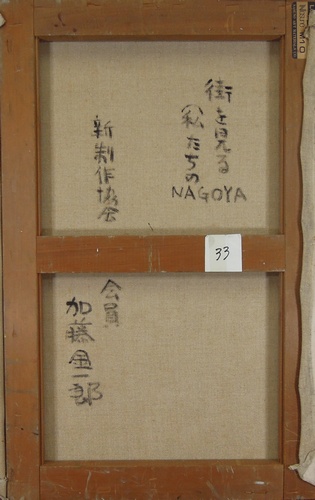 街を見る
(私たちの
NAGOYA
新制作協会
会員
加藤金一郎
33